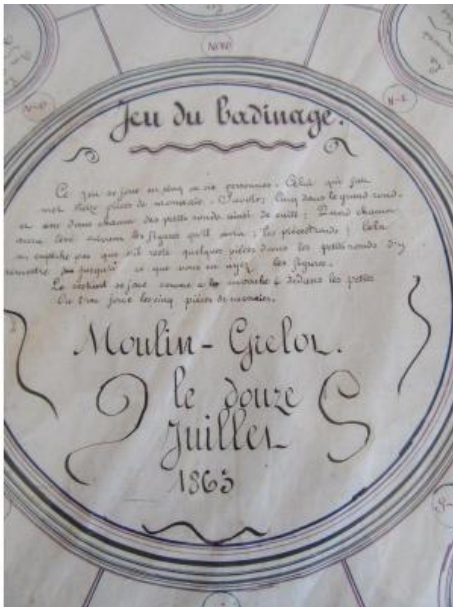 Nord
N-O
N-E
Jeu du badinage.
Ce jeu se joue en cinq ou six personnes. Celui qui fait
met pièces de monnaie. Savoir; cinq dans le grand rond
et une dans chacun des petits ronds ainsi de suite; Quand chacun
aura levé suivant les figures qu'il aura; les précédents; Cela
n'empêche pas que s'il reste quelques pièces dans les petits ronds d'y
remettre jusqu'à ce que vous en ayez les figures.
Le restant se joue comme à la mouche dedans les petits
Ou l'on joue les cinq pièces de monnaies.
Moulin-Grelot.
le douze
Juillet
1863
S-